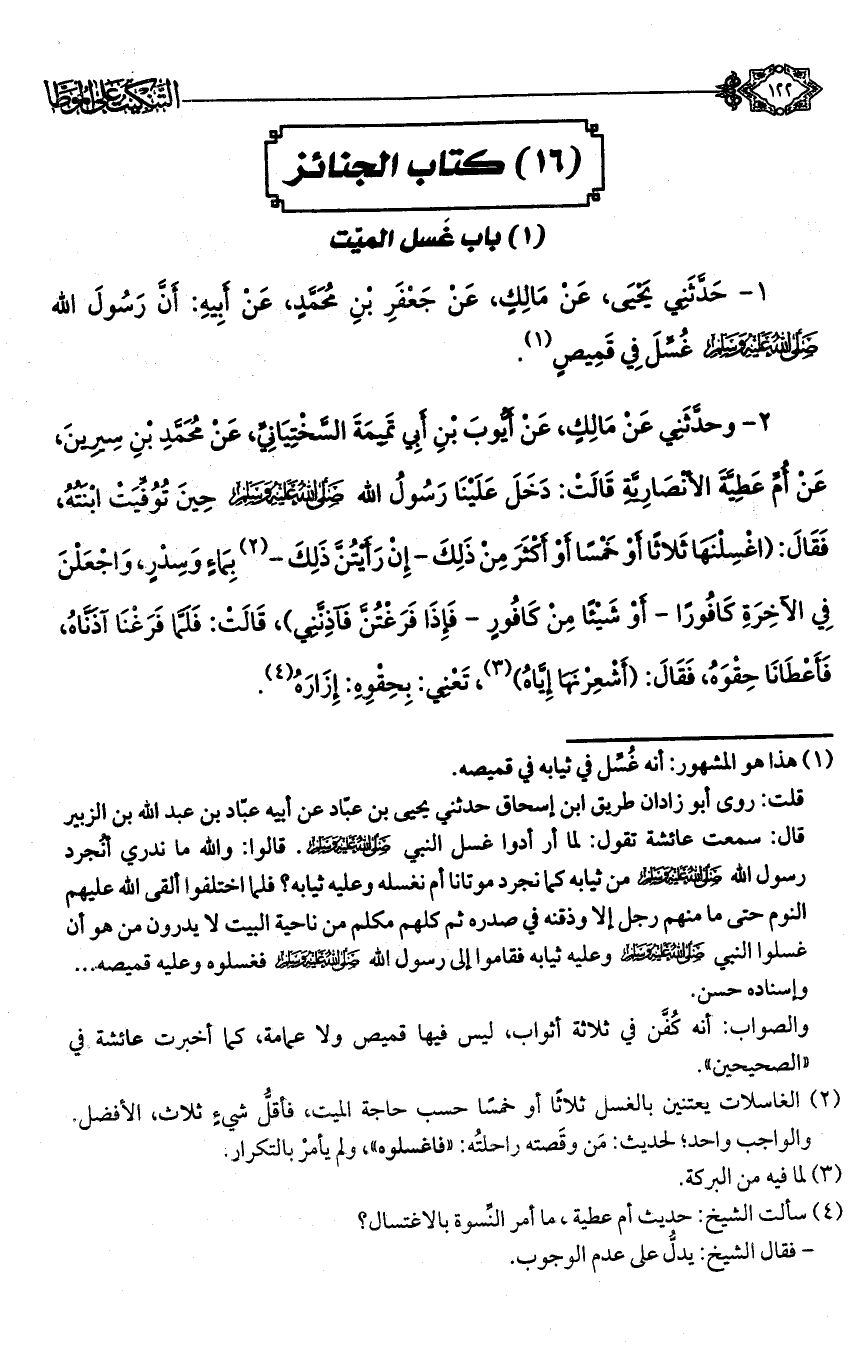 ١٢٢
التنكيت على الموطأ
(١٦) كتاب الجنائز
(١) باب غَسل الميّت
١- حَدَّثَنِي يَحْيَى، عَنْ مَالِكٍ، عَنْ جَعْفَرِ بْنِ مُحَمَّدٍ، عَنْ أَبِيهِ: أَنَّ رَسُولَ الله
صَلَّى اللهُ عَلَيْهِ وَسَلَّمَ غُسِّلَ فِي قَمِيصٍ(١).
٢- وحدَّثَنِي عَنْ مَالِكٍ، عَنْ أَيُّوبَ بْنِ أَبِي تَمِيمَةَ السَّخْتِيَانِيِّ، عَنْ مُحَمَّدِ بْنِ سِيرِينَ،
عَنْ أُمِّ عَطِيَّةَ الأَنْصَارِيَّةِ قَالَتْ: دَخَلَ عَلَيْنَا رَسُولُ الله صَلَّى اللهُ عَلَيْهِ وَسَلَّمَ حِينَ تُوُفِّيَتْ ابْنَتُهُ،
فَقَالَ: (اغْسِلْنَهَا ثَلاثًا أَوْ خَمْسًا أَوْ أَكْثَرَ مِنْ ذَلِكَ - إِنْ رَأَيْتُنَّ ذَلِكَ -(٢) بِمَاءٍ وَسِدْرٍ، وَاجْعَلْنَ
فِي الآخِرَةِ كَافُورًا - أَوْ شَيْئًا مِنْ كَافُورٍ - فَإِذَا فَرَغْتُنَّ فَآذِنَّنِي)، قَالَتْ: فَلَمَّا فَرَغْنَا آذَنَّاهُ،
فَأَعْطَانَا حِقْوَهُ، فَقَالَ: (أَشْعِرْنَهَا إِيَّاهُ)(٣)، تَعْنِي: بِحِقْوِهِ: إِزَارَهُ(٤).
(١) هذا هو المشهور: أنه غُسِّل في ثيابه في قميصه.
قلت: روى أبو زادان طريق ابن إسحاق حدثني يحيى بن عبّاد عن أبيه عبّاد بن عبد الله بن الزبير
قال: سمعت عائشة تقول: لما أر أدوا غسل النبي صَلَّى اللهُ عَلَيْهِ وَسَلَّمَ. قالوا: والله ما ندري أنُجرد
رسول الله صَلَّى اللهُ عَلَيْهِ وَسَلَّمَ من ثيابه كما نجرد موتانا أم نغسله وعليه ثيابه؟ فلما اختلفوا ألقى الله عليهم
النوم حتى ما منهم رجل إلا وذقنه في صدره ثم كلهم مكلم من ناحية البيت لا يدرون من هو أن
غسلوا النبي صَلَّى اللهُ عَلَيْهِ وَسَلَّمَ وعليه ثيابه فقاموا إلى رسول الله صَلَّى اللهُ عَلَيْهِ وَسَلَّمَ فغسلوه وعليه قميصه...
وإسناده حسن.
والصواب: أنه كُفَّن في ثلاثة أثواب، ليس فيها قميص ولا عمامة، كما أخبرت عائشة في
«الصحيحين».
(٢) الغاسلات يعتنين بالغسل ثلاثًا أو خمسًا حسب حاجة الميت، فأقلُّ شيءٍ ثلاث، الأفضل.
والواجب واحد؛ لحديث: مَن وقَصته راحلتُه: «فاغسلوه»، ولم يأمرْ بالتكرار.
(٣) لما فيه من البركة.
(٤) سألت الشيخ: حديث أم عطية، ما أمر النِّسوة بالاغتسال؟
- فقال الشيخ: يدلُّ على عدم الوجوب.